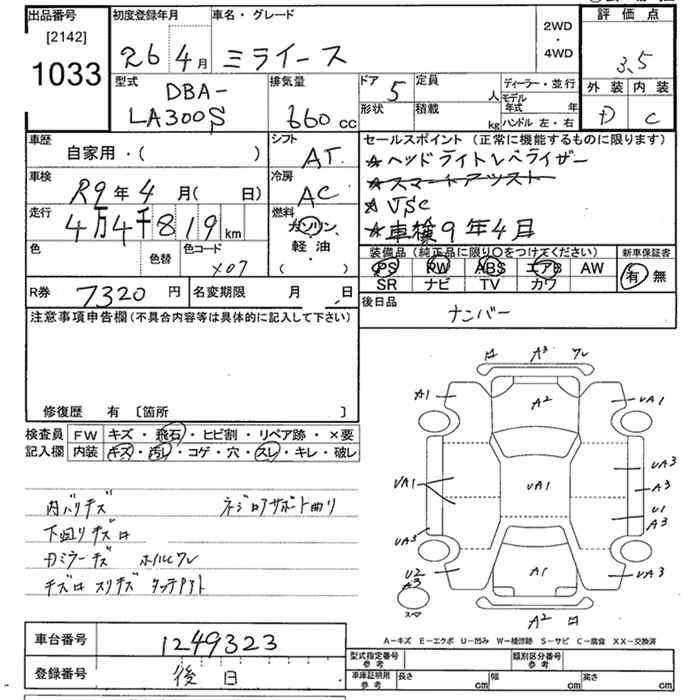 出品番号
[2142]
1033
初度登録年月
26 4月
車名・グレード
ミライース
2WD
・
4WD
評価点
3.5
外装 内装
D C
型式
DBA-
LA300S
排気量
660 cc
ドア 5
定員 人
形状
積載 kg
ディーラー・並行
モデル年式 年
ハンドル 左・右
車歴
自家用・( )
シフト
AT
車検
R9年4月( 日)
冷房
AC
走行
4万4千819km
燃料
ガソリン、
軽油・
( )
色
色替
色コード
X07
R券 7320円
名変期限 月 日
セールスポイント (正常に機能するものに限ります)
☆ヘッドライトレベライザー
☆スマートアシスト
☆VSC
☆車検9年4月
装備品 (純正品に限り○をつけてください)
PS PW ABS エアB AW
SR ナビ TV カワ
新車保証書
有 無
後日品
ナンバー
注意事項申告欄(不具合内容等は具体的に記入して下さい)
修復歴 有 [箇所 ]
検査員記入欄
FW キズ・飛石・ヒビ割・リペア跡・×要
内装 キズ・汚レ・コゲ・穴・スレ・キレ・破レ
内バリキズ
下廻りキズ
ミラーキズ
A3
A1
A2
UA1
UA1
UA1
UA3
A3
U1
A3
UA3
U2
A3
A1
UA3
A2
A-キズ E-エクボ U-凹み W-補修跡 S-サビ C-腐食 XX-交換済
車台番号
1249323
登録番号
後日
型式指定番号
参考
類別区分番号
参考
車庫証明用
参考
長さ cm
幅 cm
高さ cm